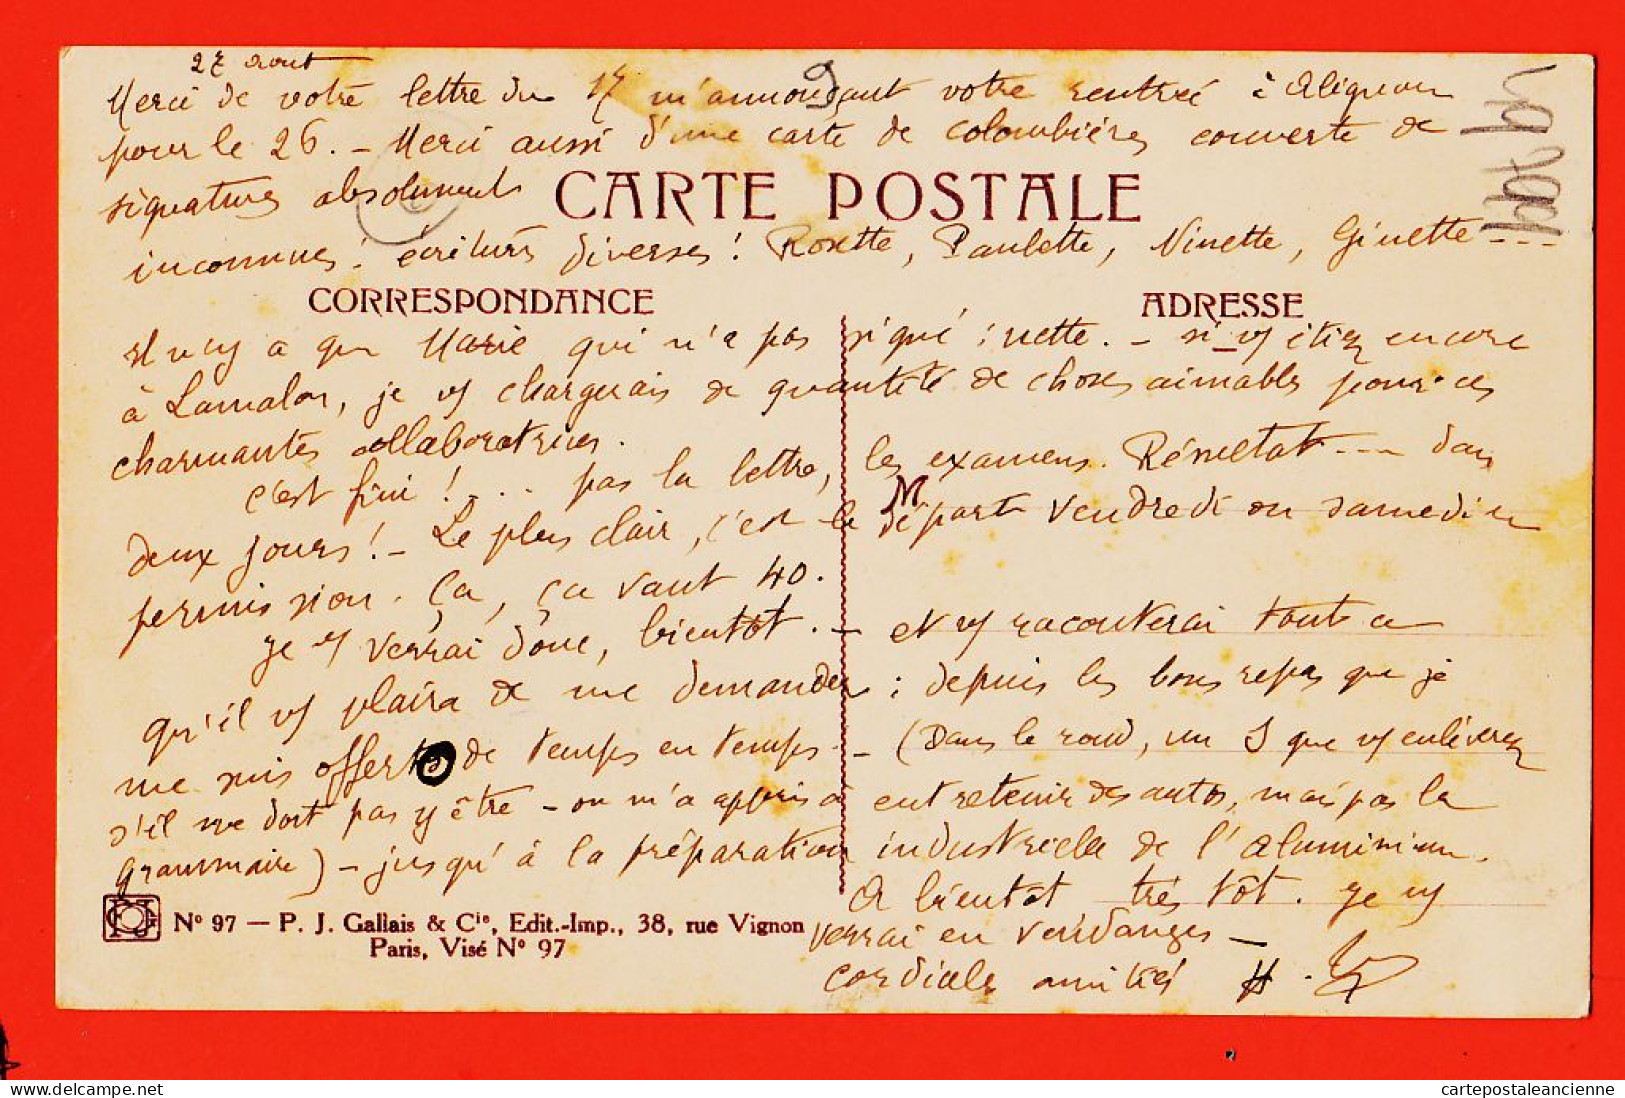 27 aout
Merci de votre lettre du 17 m'annonçant votre rentrée à Alignan
pour le 26. - Merci aussi d'une carte de Colombières couverte de
signatures absolument
CARTE POSTALE
inconnues ! écritures diverses ! Rosette, Paulette, Ninette, Ginette ---
CORRESPONDANCE
ADRESSE
Il n'y a que Marie qui n'a pas signé : nette. - si vs étiez encore
à Lamalou, je vs chargerais de quantité de choses aimables pour ces
charmantes collaboratrices.
c'est fini ! ... pas la lettre, les examens. Résultat --- dans
deux jours ! - Le plus clair, c'est le départ vendredi ou samedi en
permission. Ça, ça vaut 40.
Je vs verrai donc, bientôt. - et vs raconterai tout ce
qu'il vs plaira de me demander ; depuis les bons repas que je
me suis offerts de temps en temps - (Dans le rond, un S que vs enlèverez
s'il ne doit pas y être - on m'a appris à entretenir des autos, mais pas la
grammaire) - jusqu'à la préparation industrielle de l'aluminium.
A bientôt très tôt. Je vs
verrai en vendanges -
cordiales amitiés H.
N° 97 — P. J. Gallais & Cie, Edit.-Imp., 38, rue Vignon
Paris, Visé N° 97
cartepostaleancienne